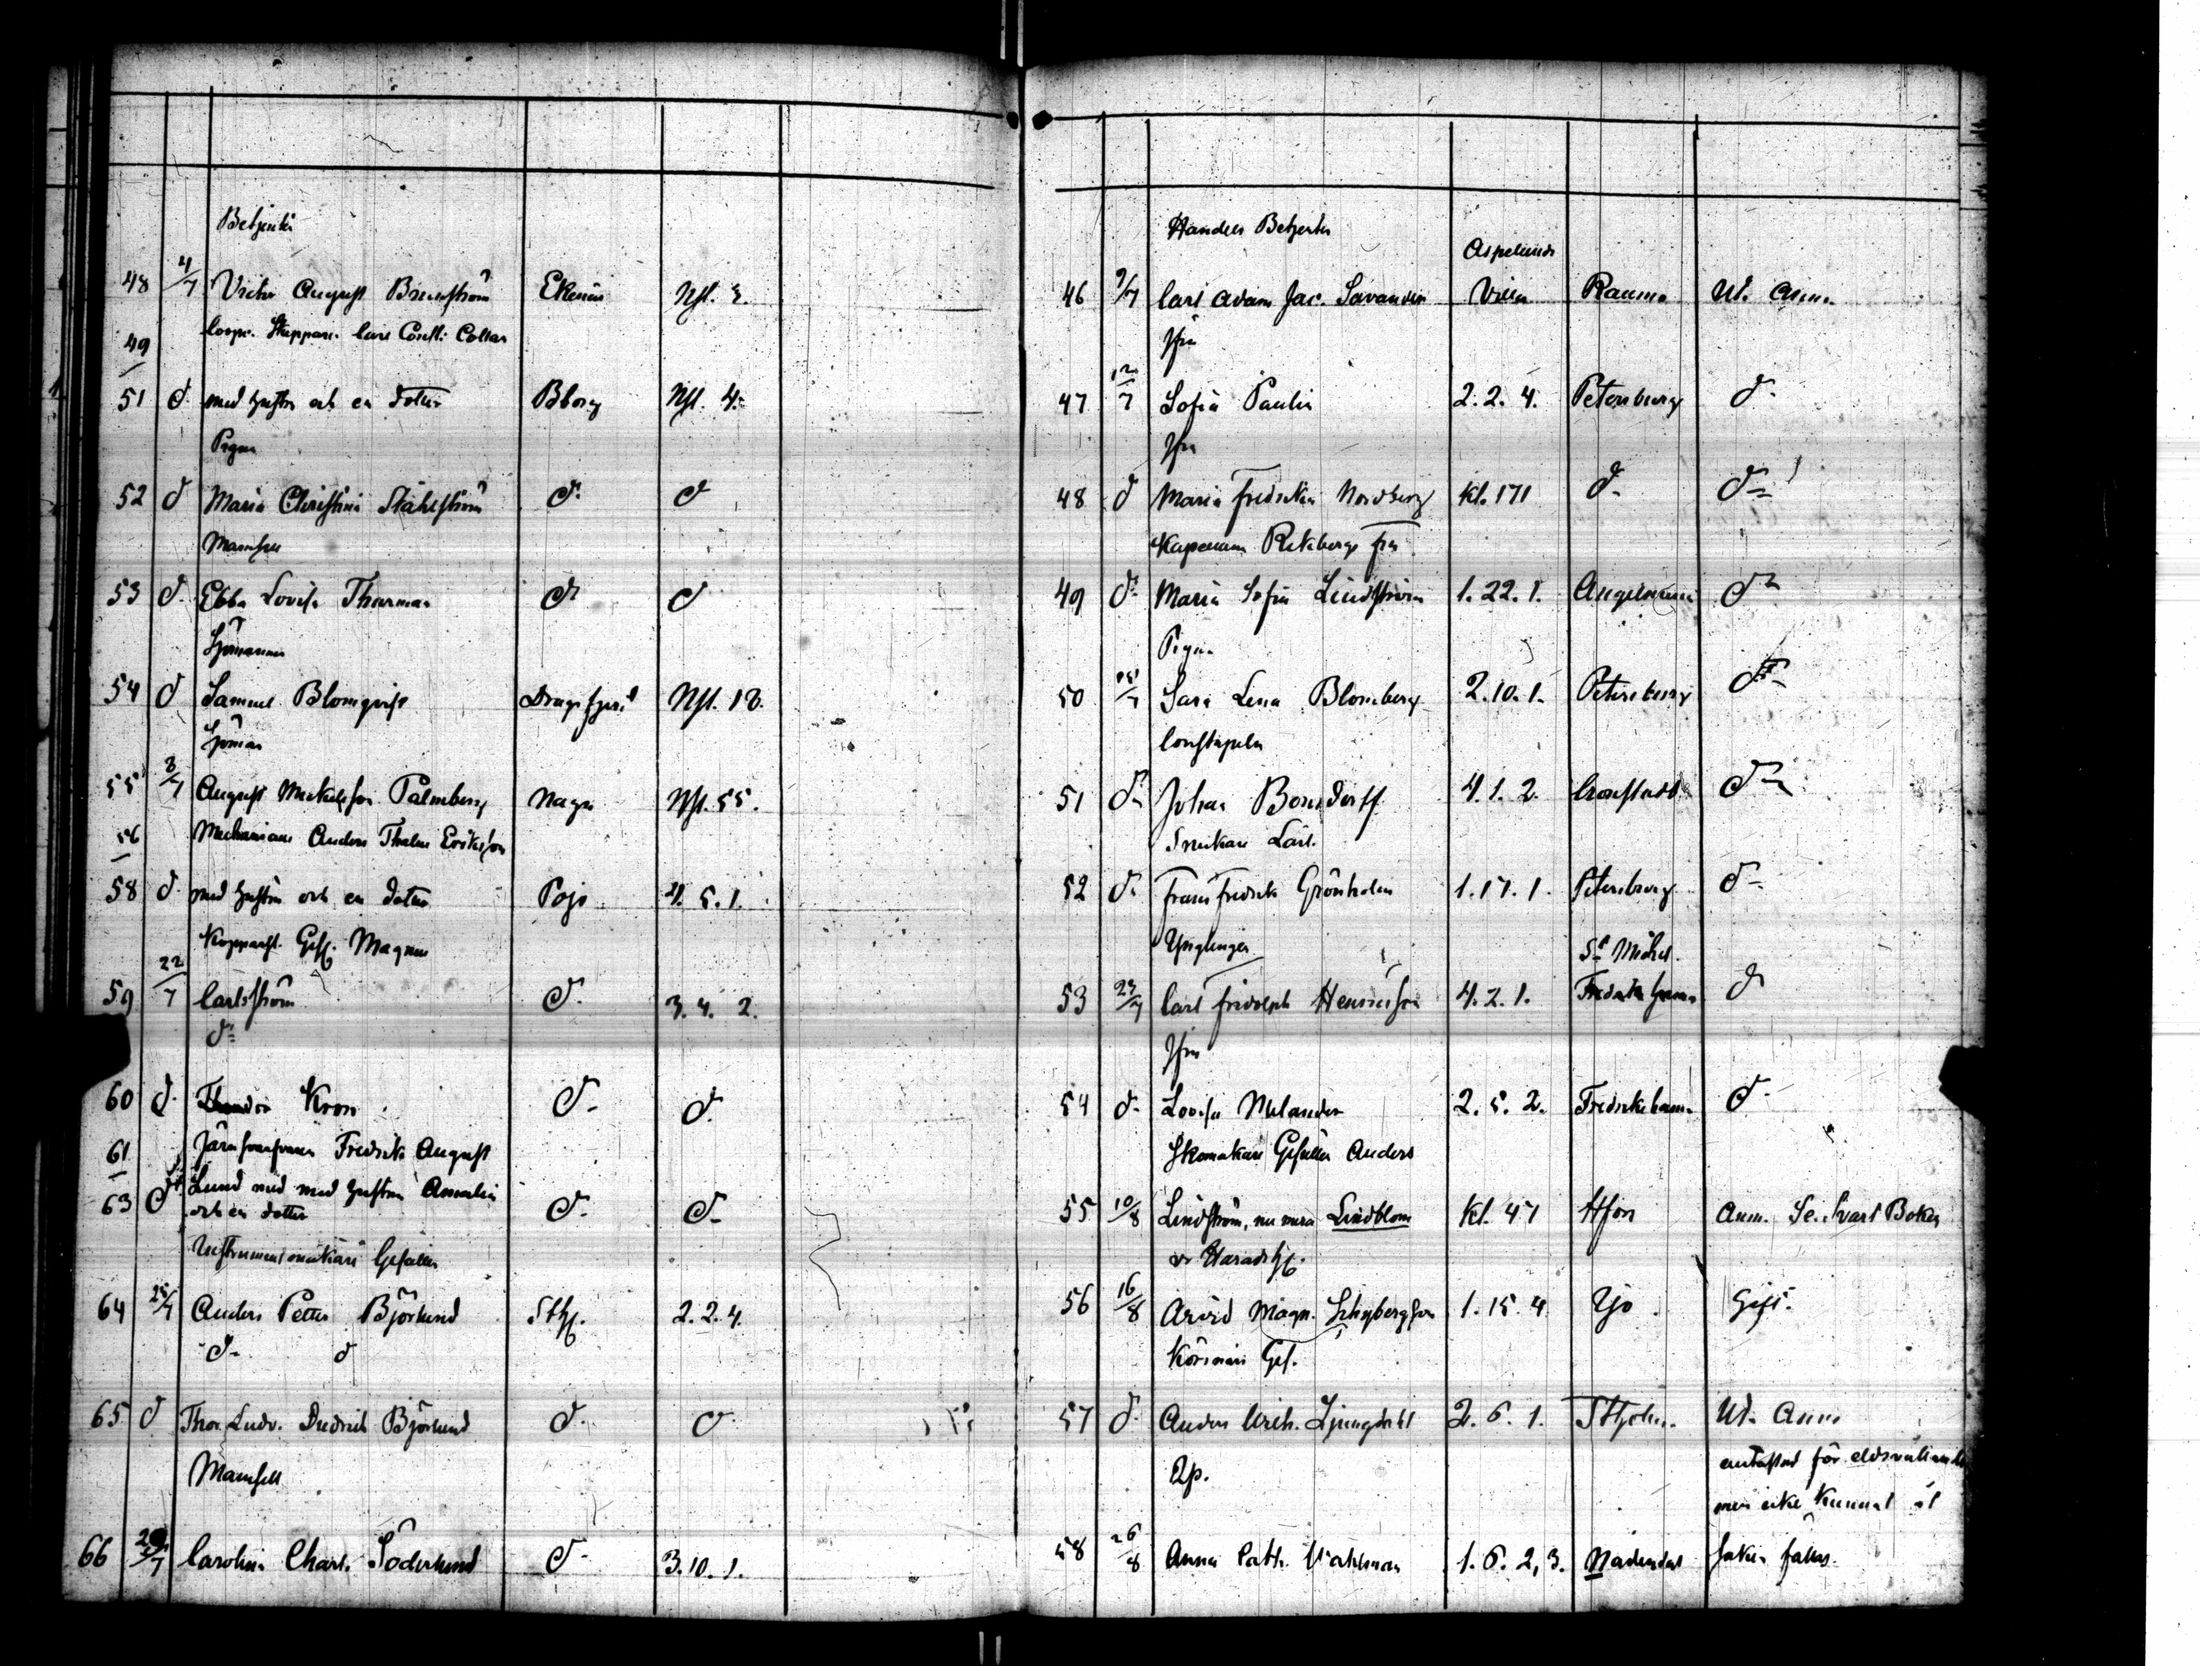 Betjenten
48 4/7 Victor August Brunström Ekenäs Nyl. 3.
49 Coop. Skeppare Carl Const: Collan
51 d. med hustru och en dotter Bborg Nyl. 4.
Pigan
52 d Maria Christina Ståhlström d. d
Mamsell
53 d. Ebba Lovisa Thurman d. d
Sjömannen
54 d Samuel Blomqvist Dragsfjerd Nyl. 18.
Sjöman
55 8/7 August Mickelsson Palmberg Nagu Nyl. 55.
56 Mechanicus Anders Thalus Eriksson
58 d. med hustru och en dotter Pojo 4. 5. 1.
Kopparsl. Ges. Magnus
59 22/7 Carlström d. 3. 4. 2.
d:
60 d. Theodor Kron d. d.
61 Fredrik August
63 d: Lund med hustru Amalia och en dotter d. d.
Instrumentmakare Gesällen
64 25/7 Anders Petter Björlund Sth. 2. 2. 4.
d. d
65 d Thor. Ludv. Diedrich Björlund d. d.
Mamsell
66 Carolina Charl. Söderlund d. 3. 10. 1.
Handels Betjenten
Aspelunds
46 9/7 Carl Adam Jac. Savander Villa Raumo Ut. Ann.
Jfru
47 12/7 Sofia Paulin 2. 2. 4. Petersburg d.
Jfru
48 d Maria Fredrika Nordberg Kl. 171 d. d.
Kapellans fru
49 d. Maria Sofia Lindström 1. 22. 1. Angelniemi d.
Pigan
50 Sara Lena Blomberg 2. 10. 1. Petersburg d.
Constapeln
51 d. Johan Bonsdorff 4. 1. 2. Cronstadt d.
Snickare Lärl.
52 d. Frans Fredrik Grönholm 1. 17. 1. Petersburg d.
Ynglingen St Michel.
53 23/7 Carl Fridolph Henricsson 4. 2. 1. Fredrikshamn d
Jfru
54 d. Lovisa Melander 2. 5. 2. Fredrikshamn d.
Skomakare Gesällen Anders
55 10/8 Lindström, nu mera Lindblom Kl. 47 Hfors Ann. Se. Svart Boken
v. Häradshf.
56 16/8 Arvid Magn. Schybergson 1. 15. 4 Yjo Gift.
Körsnärs Ges.
57 d. Anders Ulrik. Ljungdahl 2. 6. 1. Stholm. Ut. Ann
Qp. antastad för eldsvållande
men icke kunnat åt
58 26/8 Anna Cath. Wahlman 1. 6. 2, 3. Nådendal saken fällas.